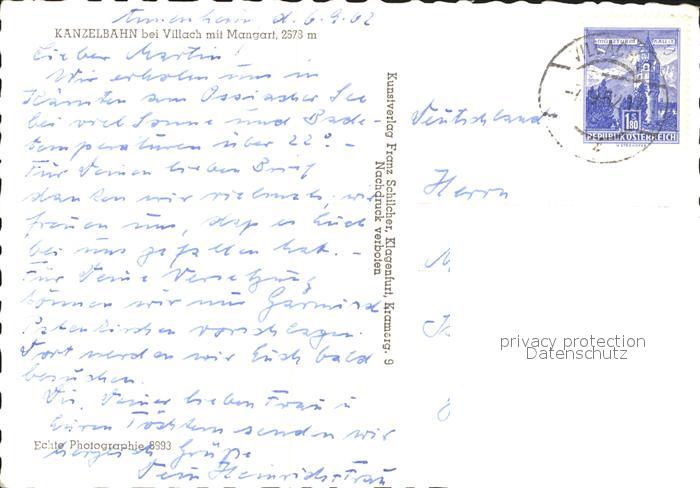 Annenheim d. 6.9.62
KANZELBAHN bei Villach mit Mangart, 2678 m
Lieber Martin!
Wir erholen uns in
Kärnten am Ossiacher See
bei viel Sonne und Bade-
temperaturen über 22°. -
Für Deinen lieben Brief
danken wir vielmals, wir
freuen uns, daß es Euch
bei uns gefallen hat. -
Für Deine Versetzung
können wir nur Garmisch
Partenkirchen vorschlagen.
Dort werden wir Euch bald
besuchen.
Dir, Deiner lieben Frau u
Euren Töchtern senden wir
herzlich Grüße
Dein Heinrich + Frau
Echte Photographie 8993
Kunstverlag Franz Schilcher, Klagenfurt, Kramerg. 9
Nachdruck verboten
VILLACH
1S80
REPUBLIK ÖSTERREICH
Deutschland
Herrn
privacy protection
Datenschutz